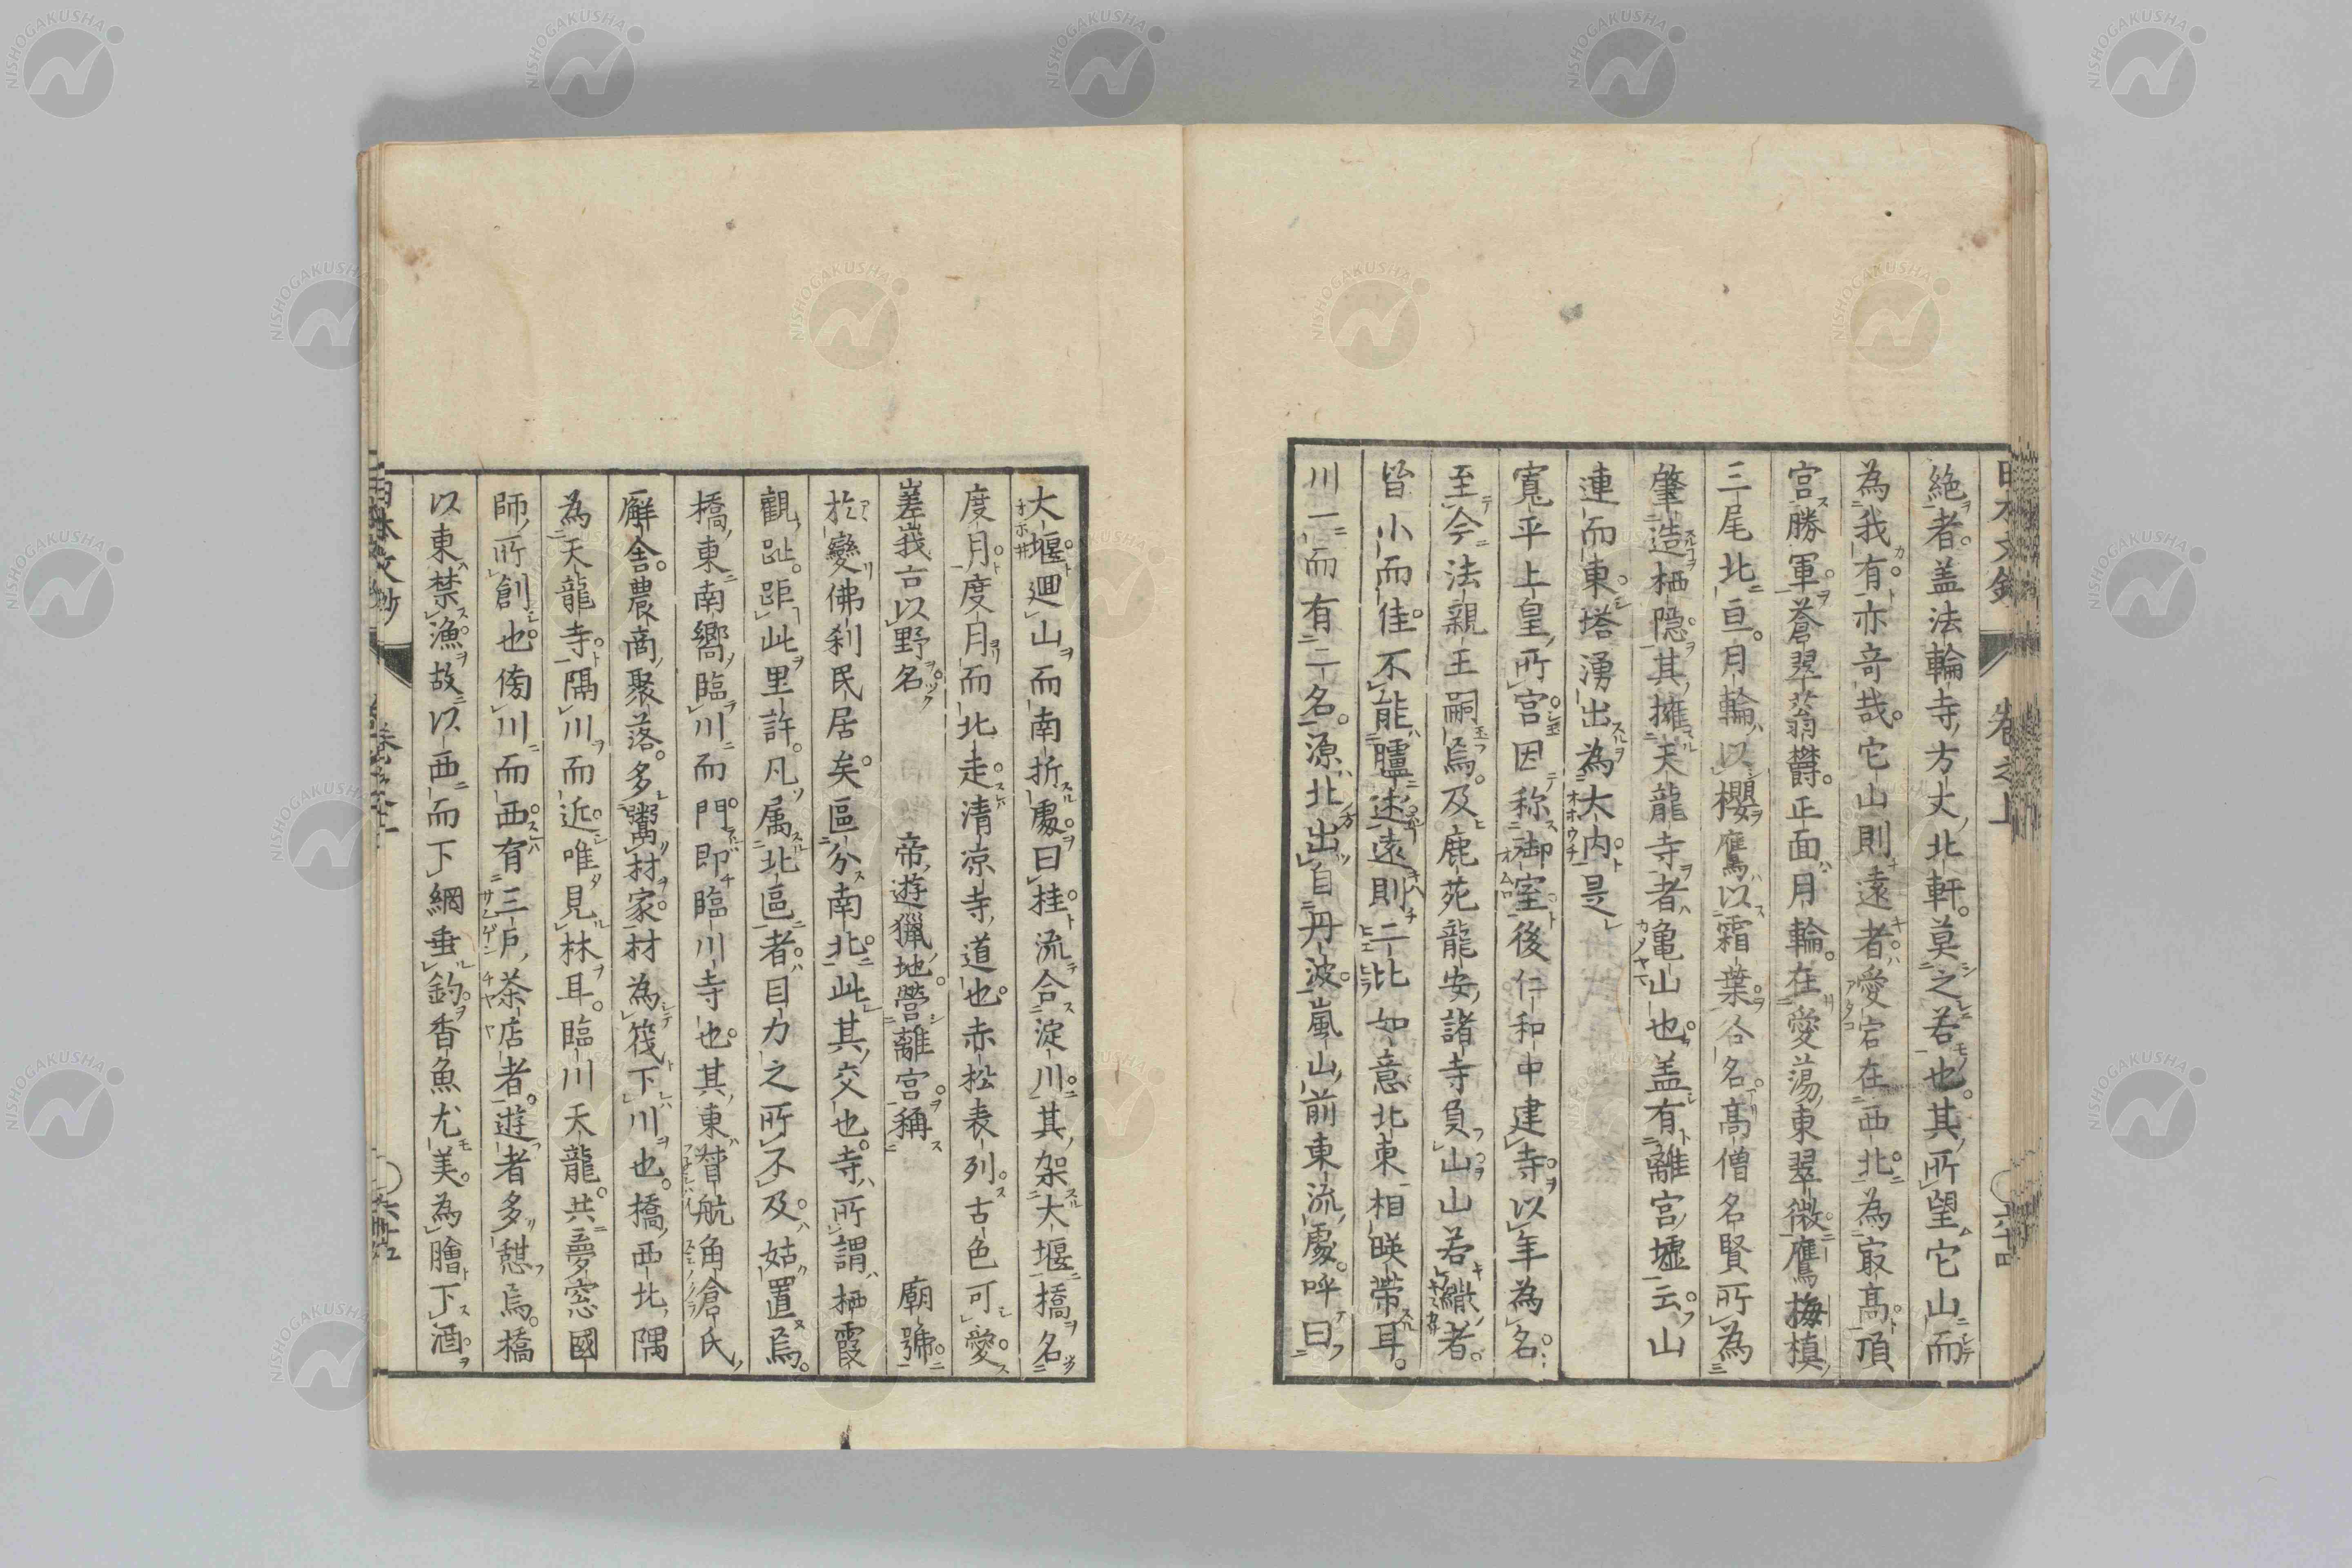 絶者。盖法輪寺方丈北軒。莫之若也。其所望它山而
為我有亦奇哉。它山則遠者愛宕在西北為㝡高頂
宮勝軍。蒼翠蓊欝。正面月輪。在愛蕩東翠微鷹梅槙
三尾北亘。月輪以櫻鷹以霜葉各名高僧名賢所為
肇造栖隠。其擁天龍寺者亀山也。盖有離宮墟云。山
連而東塔湧出為大内是
寛平上皇所宮因称御室後仁和中建寺以年為名。
至今法親王嗣焉。及鹿苑龍安諸寺負山山若繖者。
皆小而佳。不能臚述遠則二比如意北東相暎帶耳。
川一而有二名。源北出自丹波。嵐山前東流處。呼曰
大堰廻山而南折處曰桂流合淀川其架大堰橋名
度月度月而北走清凉寺道也。赤松表列。古色可愛
嵯峩古以野名 帝遊獵地。營離宮稱 廟號
於變佛刹民居矣。區分南北此其交也。寺所謂栖霞
觀趾。距此里許。凡属北區者。目力之所不及姑置焉。
橋東南嚮臨川而門即臨川寺也。其東督航角倉氏
廨舎。農商聚落。多鬻材家。材為筏下川也。橋西北隅
為天龍寺。隅川而近唯見林耳。臨川天龍。共夢窓國
師所創也。傍川而西有三戸茶店者。遊者多憩焉。橋
以東禁漁故以西而下網垂釣。香魚尤美。為膾下酒